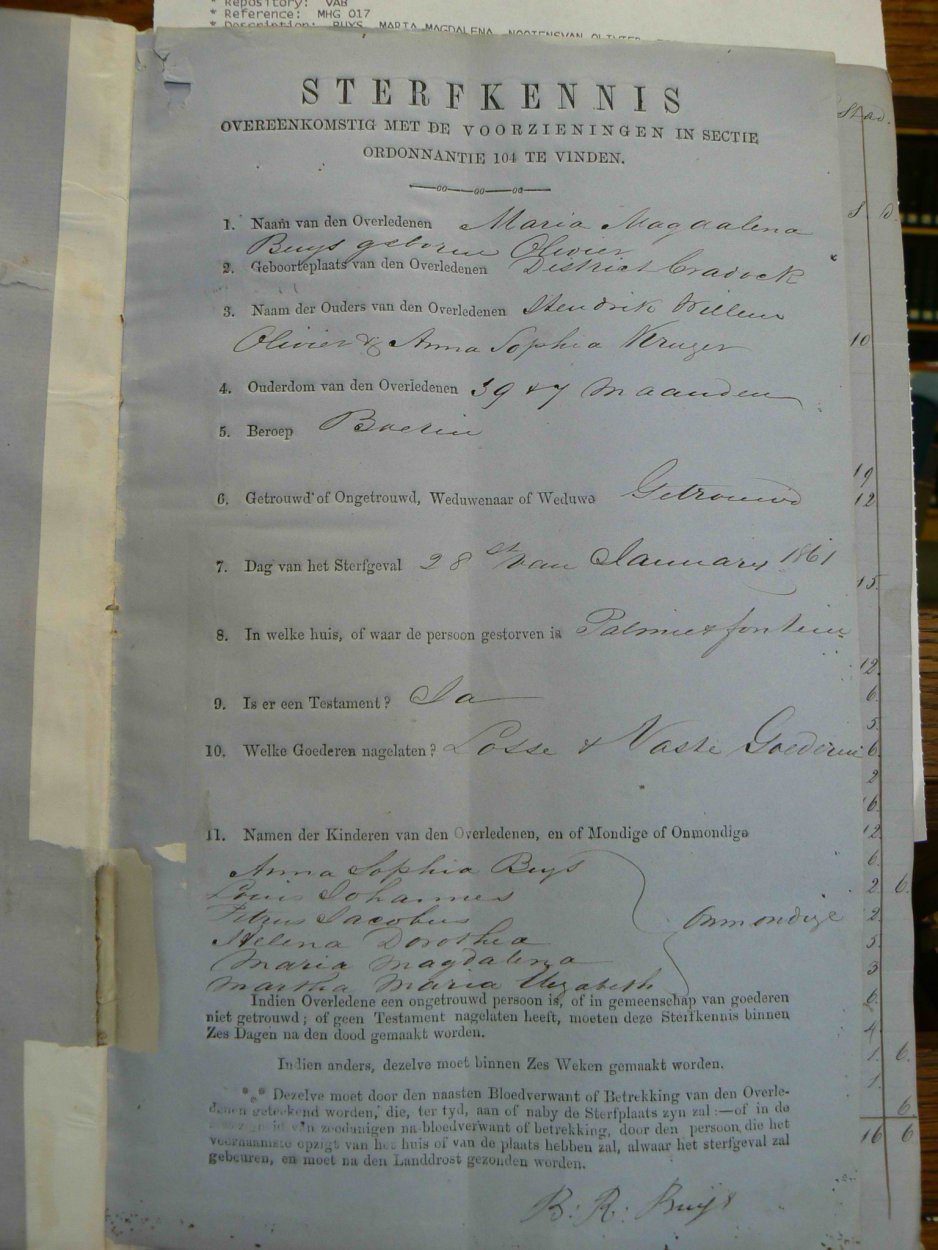 * Repository: VAB
* Reference: MHG 017
* Description: BUYS, MARIA MAGDALENA.
STERFKENNIS
OVEREENKOMSTIG MET DE VOORZIENINGEN IN SECTIE
ORDONNANTIE 104 TE VINDEN.
1. Naam van den Overledenen Maria Magdalena
Buys geboren Olivier
2. Geboorteplaats van den Overledenen District Cradock
3. Naam der Ouders van den Overledenen Hendrik Willem
Olivier & Anna Sophia Kruger
4. Ouderdom van den Overledenen 39 & 7 Maanden
5. Beroep Boerin
6. Getrouwd of Ongetrouwd, Weduwenaar of Weduwe Getrouwd
7. Dag van het Sterfgeval 28 st van January 1861
8. In welke huis, of waar de persoon gestorven is Palmietfontein
9. Is er een Testament? Ja
10. Welke Goederen nagelaten? Losse & Vaste Goederen
11. Namen der Kinderen van den Overledenen, en of Mondige of Onmondige
Anna Sophia Buys
Louis Johannes
Petrus Jacobus
Helena Dorothea
Maria Magdalena
Martha Maria Elizabeth
Onmondige
Indien Overledene een ongetrouwd persoon is, of in gemeenschap van goederen
niet getrouwd; of geen Testament nagelaten heeft, moeten deze Sterfkennis binnen
Zes Dagen na den dood gemaakt worden.
Indien anders, dezelve moet binnen Zes Weken gemaakt worden.
*** Dezelve moet door den naasten Bloedverwant of Betrekking van den Overle-
denen geteekend worden, die, ter tyd, aan of naby de Sterfplaats zyn zal:—of in de
van zoodanigen na bloedverwant of betrekking, door den persoon die het
voornaamste opzigt van het huis of van de plaats hebben zal, alwaar het sterfgeval zal
gebeuren, en moet na den Landdrost gezonden worden.
B: R: Buys
S D.
10
19
12
15
12
6
5
6
2
16
12
6
2 6
2
5
3
6
4
1 6
1
6
16 6